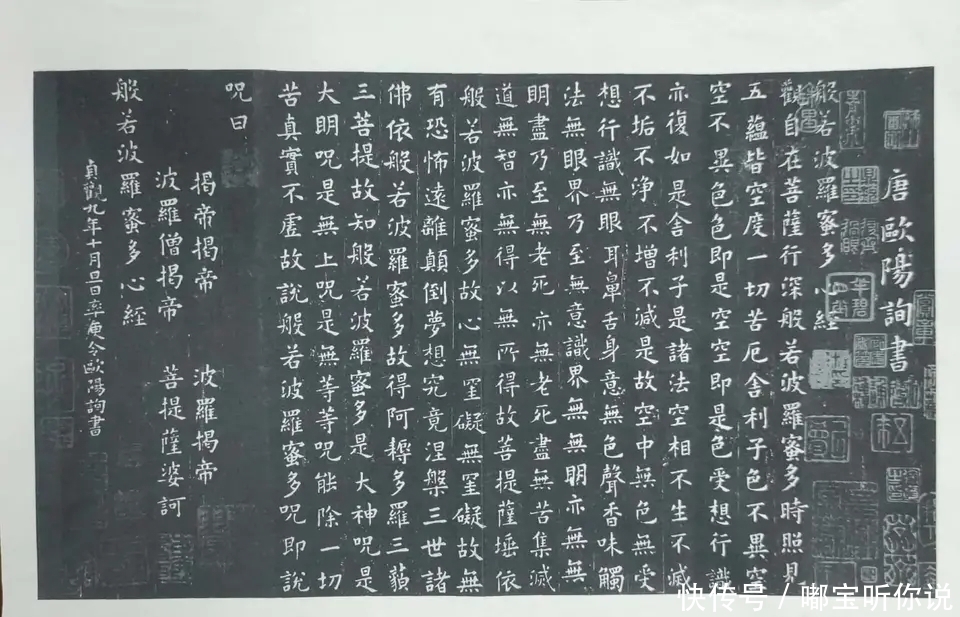 唐歐陽詢書
般若波羅蜜多心經
觀自在菩薩行深般若波羅蜜多時照見
五蘊皆空度一切苦厄舍利子色不異空
空不異色色即是空空即是色受想行識
亦復如是舍利子是諸法空相不生不滅
不垢不淨不增不減是故空中無色無受
想行識無眼耳鼻舌身意無色聲香味觸
法無眼界乃至無意識界無無明亦無無
明盡乃至無老死亦無老死盡無苦集滅
道無智亦無得以無所得故菩提薩埵依
般若波羅蜜多故心無罣礙無罣礙故無
有恐怖遠離顛倒夢想究竟涅槃三世諸
佛依般若波羅蜜多故得阿耨多羅三藐
三菩提故知般若波羅蜜多是大神呪是
大明呪是無上呪是無等等呪能除一切
苦真實不虛故說般若波羅蜜多呪即說
呪曰
揭帝揭帝 波羅揭帝
波羅僧揭帝 菩提薩婆訶
般若波羅蜜多心經
貞觀九年十月旦日率更令歐陽詢書
快传号 / 嘟宝听你说